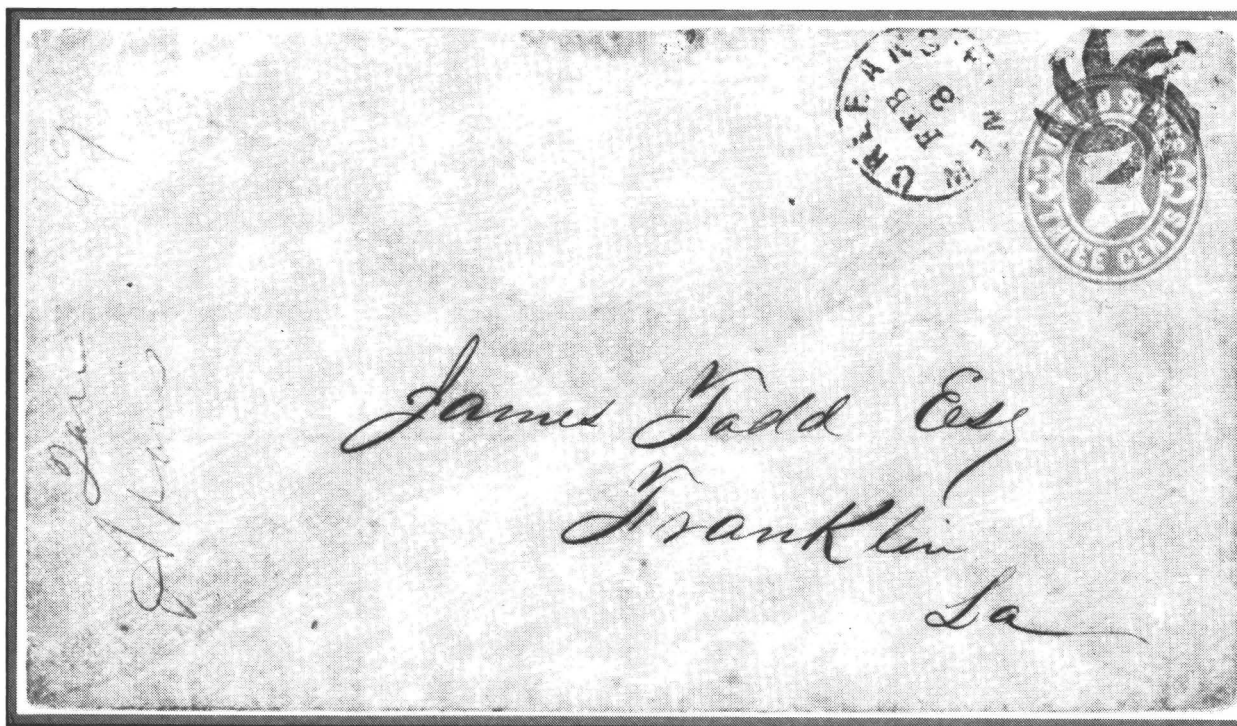 NEW ORLEANS
FEB
8
U.S. POSTAGE
THREE CENTS
3 3
James Todd Esq
Franklin
La